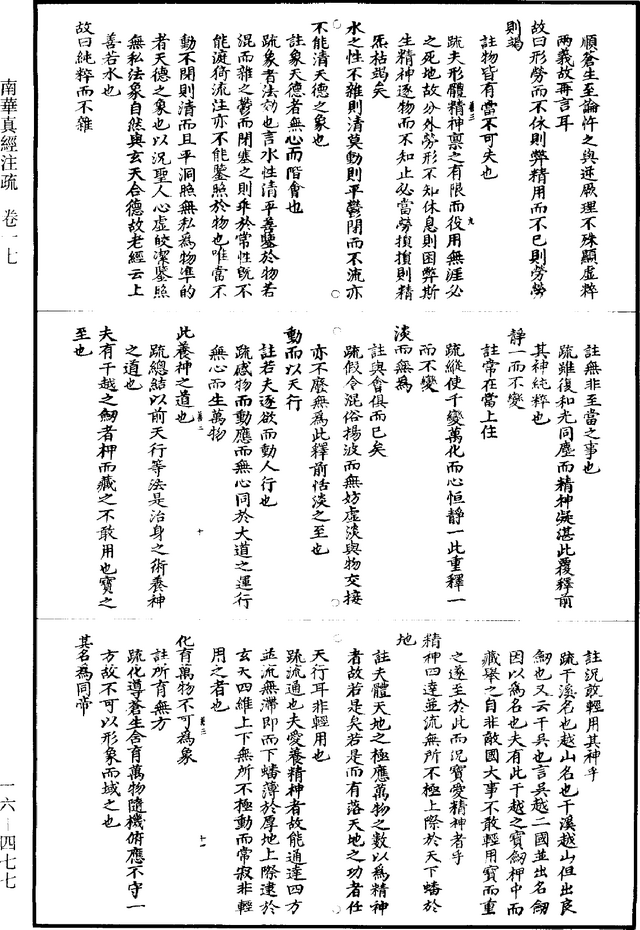 南華真經注疏　卷一七
一六－四七七
順蒼生至論忤之與逆厥理不殊顯虛粹
兩義故再言耳
故曰形勞而不休則弊精用而不已則勞勞
則竭
註物皆有當不可失也
疏夫形體精神稟之有限而役用無涯必
之死地故分外勞形不知休息則困弊斯
生精神逐物而不知止必當勞損損則精
炁枯竭矣
水之性不雜則清莫動則平鬱閉而不流亦
不能清天德之象也
註象天德者無心而偕會也
疏象者法効也言水性清平善鑒於物若
混而雜之鬱而閉塞之則乖於常性既不
能漣漪流注亦不能鑒照於物也唯當不
動不閉則清而且平洞照無私為物準的
者天德之象也以況聖人心虛皎潔鑒照
無私法象自然與玄天合德故老經云上
善若水也
故曰純粹而不雜
註無非至當之事也
疏雖復和光同塵而精神凝湛此覆釋前
其神純粹也
靜一而不變
註常在當上住
疏縱使千變萬化而心恒靜一此重釋一
而不變
淡而無為
註與會俱而已矣
疏假令混俗揚波而無妨虛淡與物交接
亦不廢無為此釋前恬淡之至也
動而以天行
註若夫逐欲而動人行也
疏感物而動應而無心同於大道之運行
無心而生萬物
此養神之道也
疏總結以前天行等法是治身之術養神
之道也
夫有干越之劒者柙而藏之不敢用也寶之
至也
註況敢輕用其神乎
疏干溪名也越山名也干溪越山但出良
劒也又云干吳也言吳越二國並出名劒
因以為名也夫有此干越之寶劒柙中而
藏舉之自非敵國大事不敢輕用寶而重
之遂至於此而況寶愛精神者乎
精神四達並流無所不極上際於天下蟠於
地
註夫體天地之極應萬物之數以為精神
者故若是矣若是而有落天地之功者任
天行耳非輕用也
疏流通也夫愛養精神者故能通達四方
並流無滯即而下蟠薄於厚地上際逮於
玄天四維上下無所不極動而常寂非輕
用之者也
化育萬物不可為象
註所育無方
疏化導蒼生含育萬物隨機俯應不守一
方故不可以形象而域之也
其名為同帝